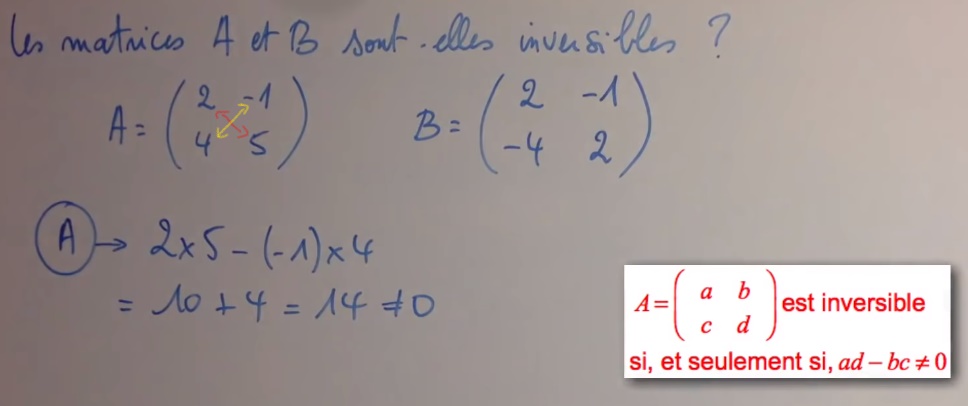 Les matrices A et B sont-elles inversibles ?
A = ( 2 -1 ; 4 5 ) B = ( 2 -1 ; -4 2 )
A → 2×5 - (-1)×4
= 10 + 4 = 14 ≠ 0
A = ( a b ; c d ) est inversible
si, et seulement si, ad – bc ≠ 0